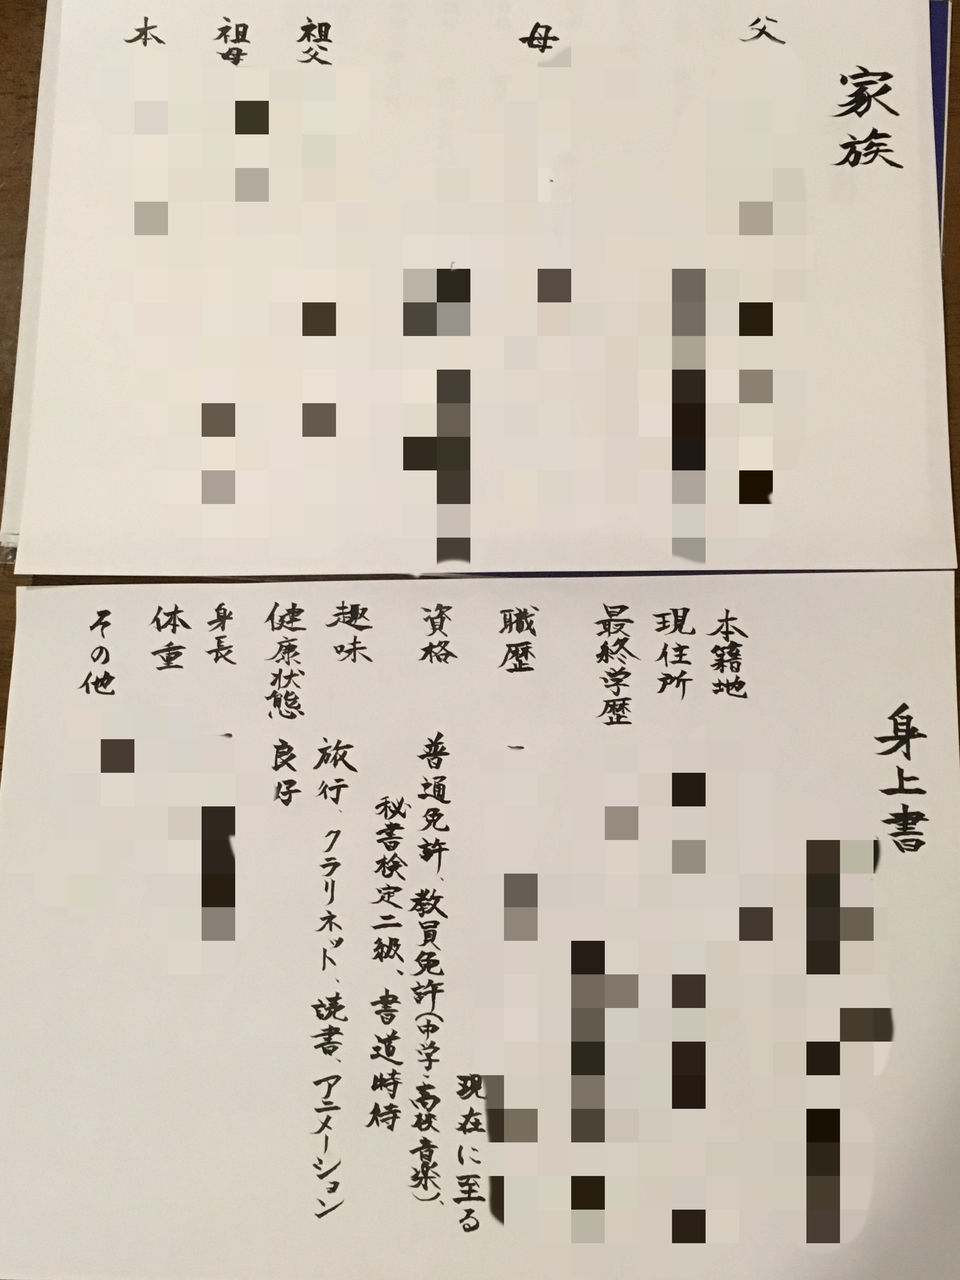 家族
父
母
祖父
祖母
本
身上書
本籍地
現住所
最終学歴
職歴
現在に至る
資格
普通免許、教員免許(中学・高校音楽)、
秘書検定二級、書道特待
趣味
旅行、クラリネット、読書、アニメーション
健康状態
良好
身長
体重
その他